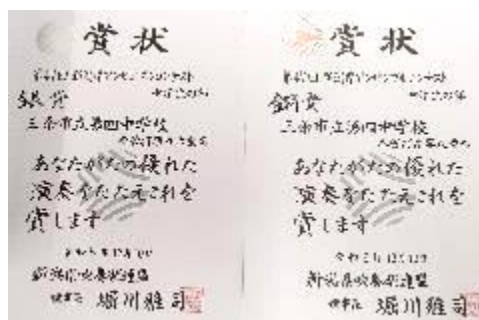 賞状
銀賞
三条市立第四中学校
あなたがたの優れた
演奏をたたえこれを
賞します
新潟県吹奏楽連盟
理事長 堀川雅司
賞状
銅賞
三条市立第四中学校
あなたがたの優れた
演奏をたたえこれを
賞します
新潟県吹奏楽連盟
理事長 堀川雅司